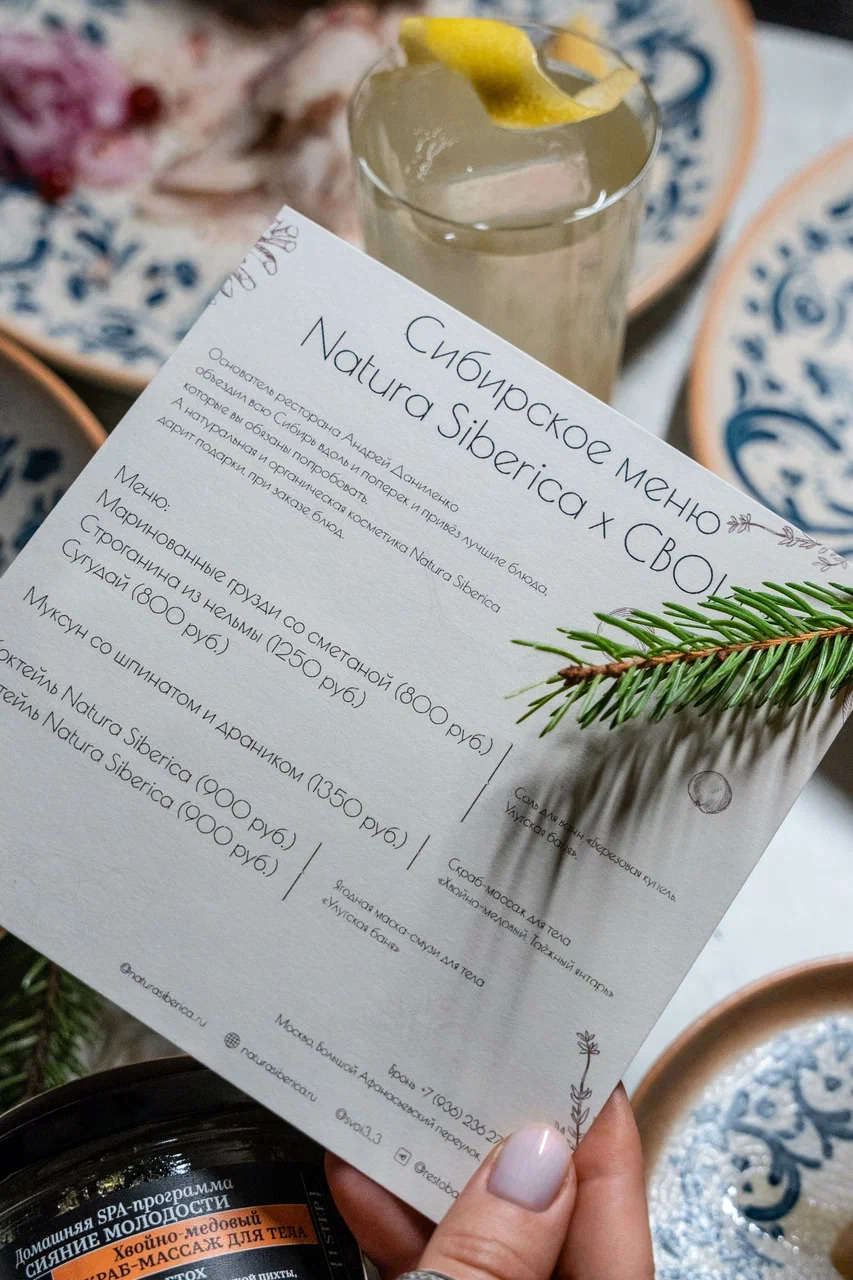 Сибирское меню
Natura Siberica x СВОИ
Основатель ресторана Андрей Даниленко
объездил всю Сибирь вдоль и поперек и привёз лучшие блюда,
которые вы обязаны попробовать.
А натуральная и органическая косметика Natura Siberica
дарит подарки, при заказе блюд.
Меню:
Маринованные грузди со сметаной (800 руб.)
Строганина из нельмы (1250 руб.)
Сугудай (800 руб.)
Соль для ванн «Березовая купель.
Улутская баня».
Муксун со шпинатом и драником (1350 руб.)
Скраб-массаж для тела
«Хвойно-медовый. Таёжный янтарь»
Natura Siberica (900 руб.)
Natura Siberica (900 руб.)
Ягодная маска-смузи для тела
«Улутская баня»
@naturasiberica.ru
naturasiberica.ru
@svoi3_3
Бронь +7 (936) 236 27
Москва, Большой Афанасьевский переулок,
Домашняя SPA-программа
СИЯНИЕ МОЛОДОСТИ
Хвойно-медовый
СКРАБ-МАССАЖ ДЛЯ ТЕЛА